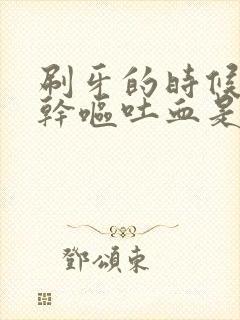 刷牙的時候
幹嘔吐血是
鄧頌東